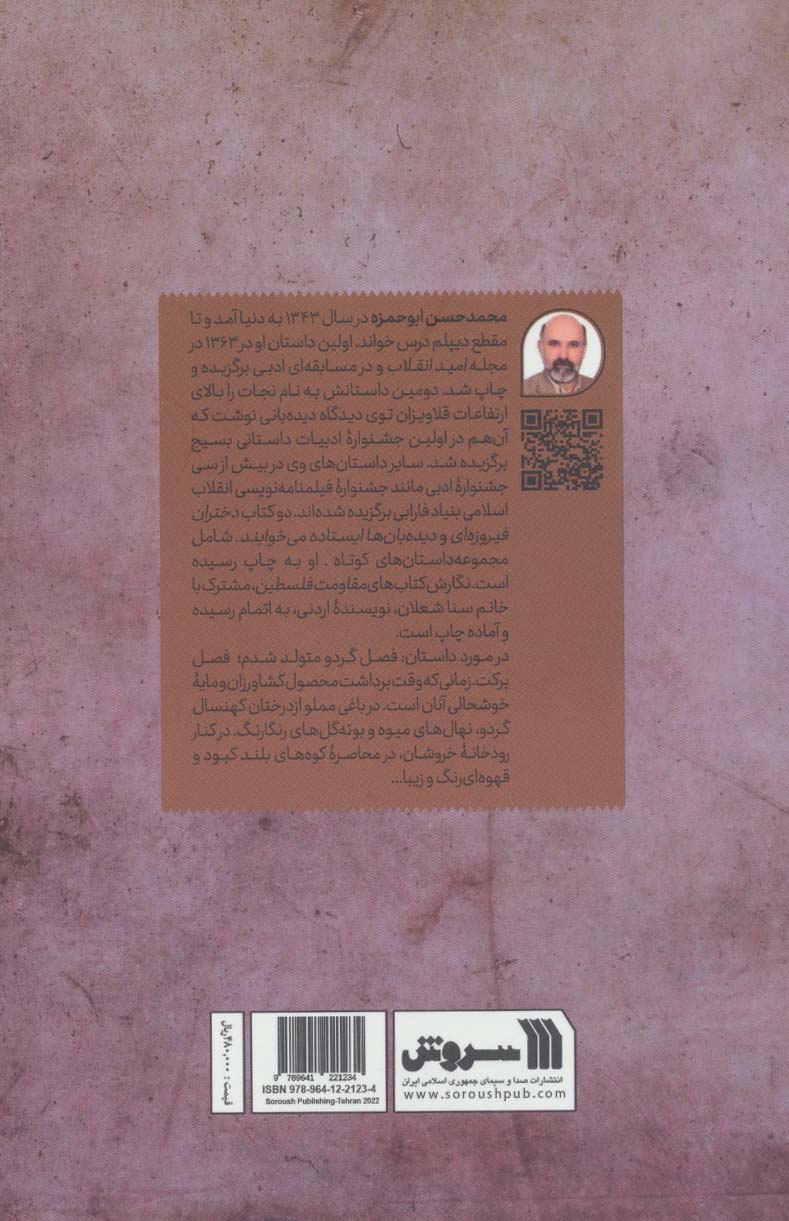 محمدحسن ابوحمزه در سال ۱۳۴۳ به دنیا آمد و تا
مقطع دیپلم درس خواند. اولین داستان او در ۱۳۶۳ در
مجله امید انقلاب و در مسابقه‌ای ادبی برگزیده و
چاپ شد. دومین داستانش به نام نجات را بالای
ارتفاعات قلاویزان توی دیدگاه دیده‌بانی نوشت که
آن‌هم در اولین جشنوارهٔ ادبیات داستانی بسیج
برگزیده شد. سایر داستان‌های وی در بیش از سی
جشنوارهٔ ادبی مانند جشنوارهٔ فیلمنامه‌نویسی انقلاب
اسلامی بنیاد فارابی برگزیده شده‌اند. دو کتاب دختران
فیروزه‌ای و دیده‌بان‌ها ایستاده می‌خوابند ـ شامل
مجموعه‌داستان‌های کوتاه ـ او به چاپ رسیده
است. نگارش کتاب‌های مقاومت فلسطین، مشترک با
خانم سنا شعلان، نویسندهٔ اردنی، به اتمام رسیده
و آماده چاپ است.
در مورد داستان: فصل گردو متولد شدم؛ فصل
برکت. زمانی که وقت برداشت محصول کشاورزان و مایهٔ
خوشحالی آنان است. در باغی مملو از درختان کهنسال
گردو، نهال‌های میوه و بوته‌گل‌های رنگارنگ. در کنار
رودخانهٔ خروشان، در محاصرهٔ کوه‌های بلند کبود و
قهوه‌ای‌رنگ و زیبا...
سروش
انتشارات صدا و سیمای جمهوری اسلامی ایران
www.soroushpub.com
9 789641 221234
ISBN 978-964-12-2123-4
Soroush Publishing-Tehran 2022
قیمت: ۴۸۰,۰۰۰ ریال